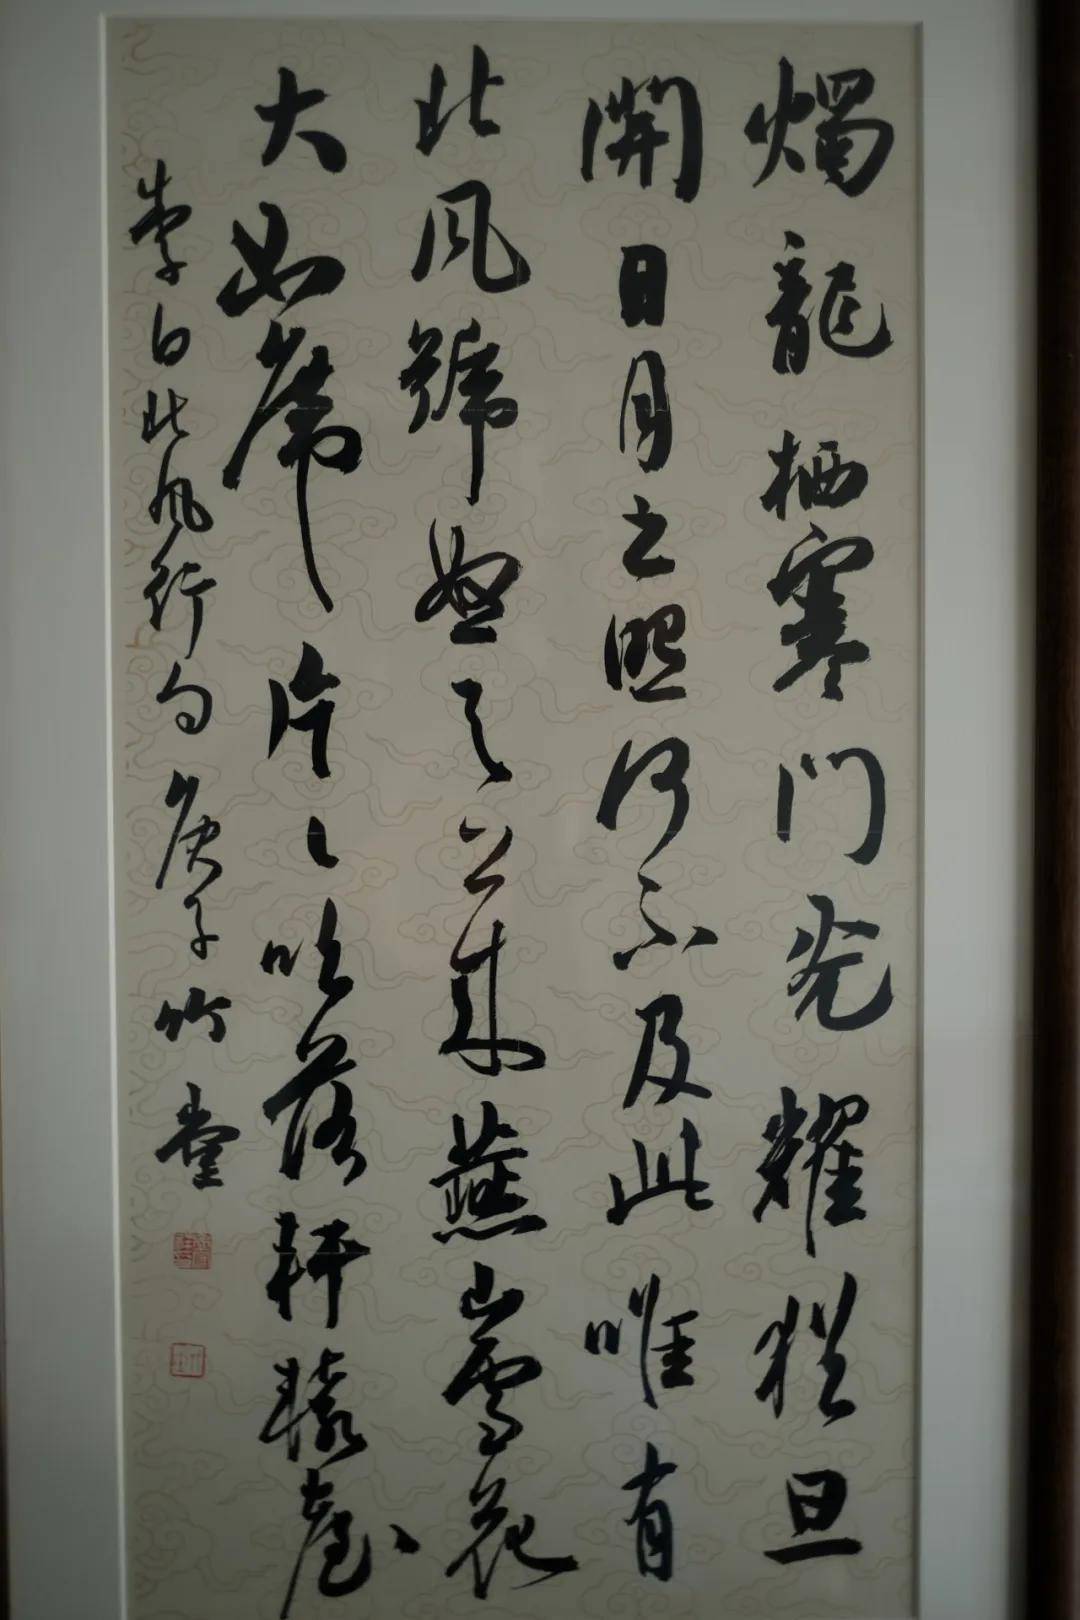 燭龍栖寒門光耀猶旦
開日月之照何不及此唯有
北風號怒天上來燕山雪花
大如席片々吹落軒轅臺
李白北風行句庚子竹堂